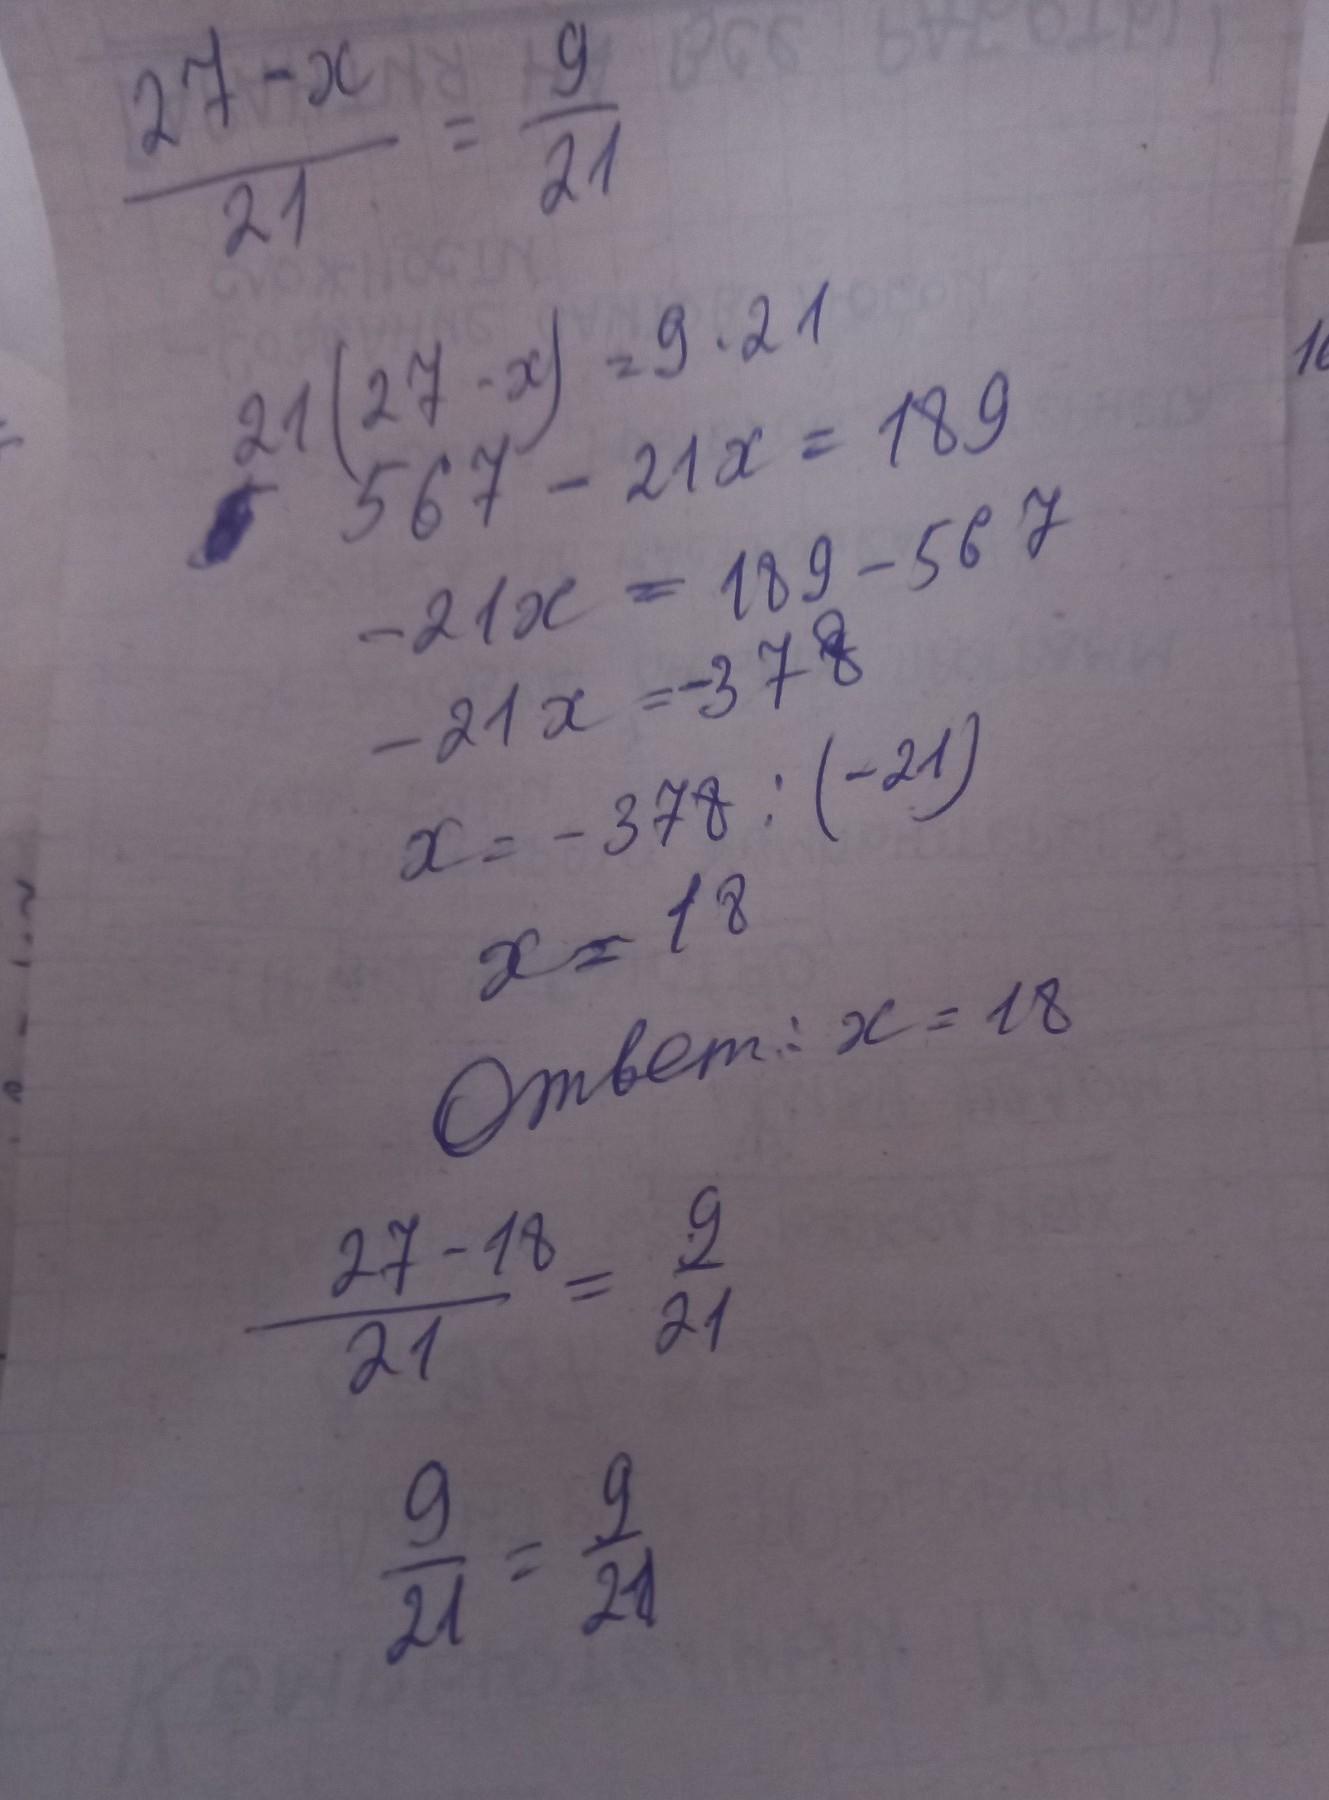 27-x/21 = 9/21
21(27-x) = 9·21
567 - 21x = 189
-21x = 189 - 567
-21x = -378
x = -378 : (-21)
x = 18
Ответ: x = 18
27-18/21 = 9/21
9/21 = 9/21